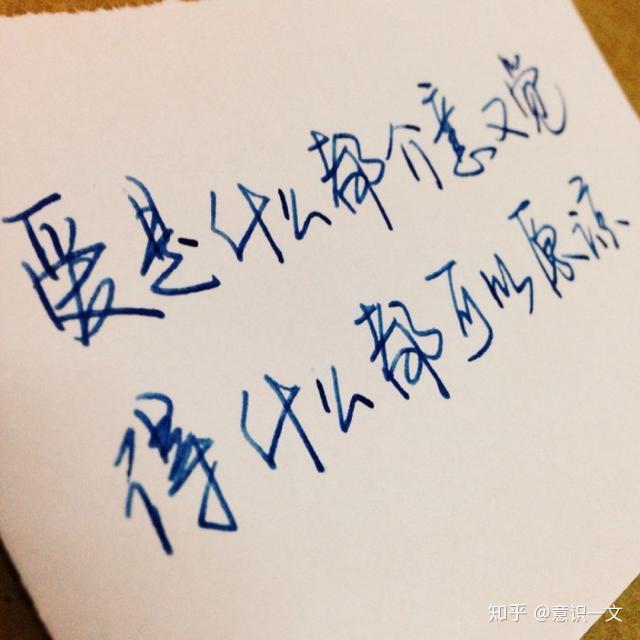 爱是什么都介意又觉
得什么都可以原谅
知乎 @意识一文